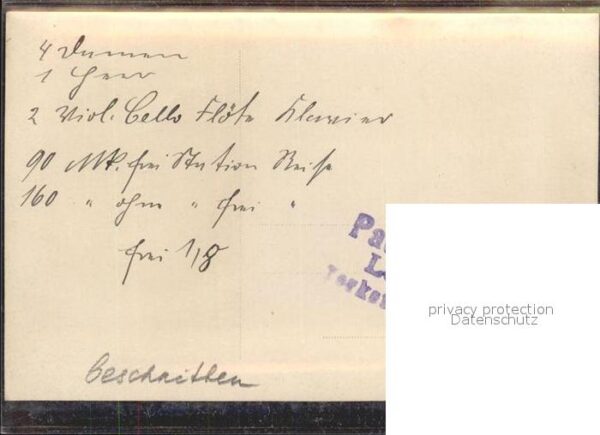 4 Damen
1 Herr
2 Viol. Cello Flöte Klavier
90 Mk. frei Station Reise
160 " ohne " frei "
frei 1/8
Pa
L
beschnitten
privacy protection
Datenschutz